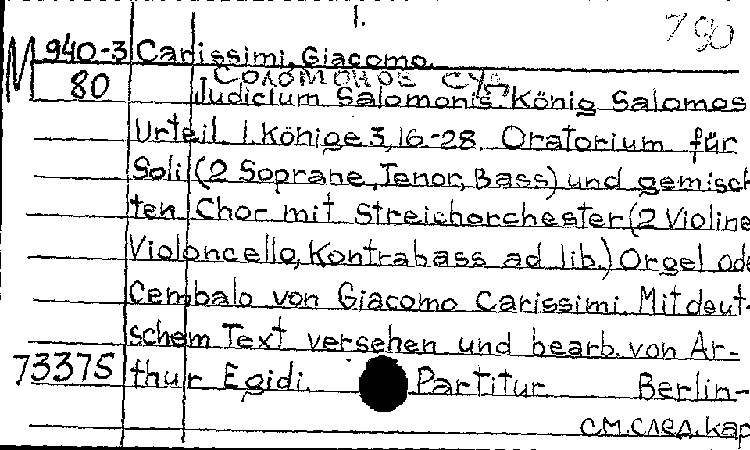 1.
780
M 940-3 Carissimi, Giacomo.
Соломонов суд
80 Judicium Salomonis. König Salomos
Urteil. 1. Könige 3, 16-28. Oratorium für
Soli (2 Soprane, Tenor, Bass) und gemisch
ten Chor mit Streichorchester (2 Violine
Violoncello, Kontrabass ad lib.) Orgel ode
Cembalo von Giacomo Carissimi. Mit deut-
schem Text versehen und bearb. von Ar-
73375 thur Egidi. Partitur Berlin-
см. след. кар